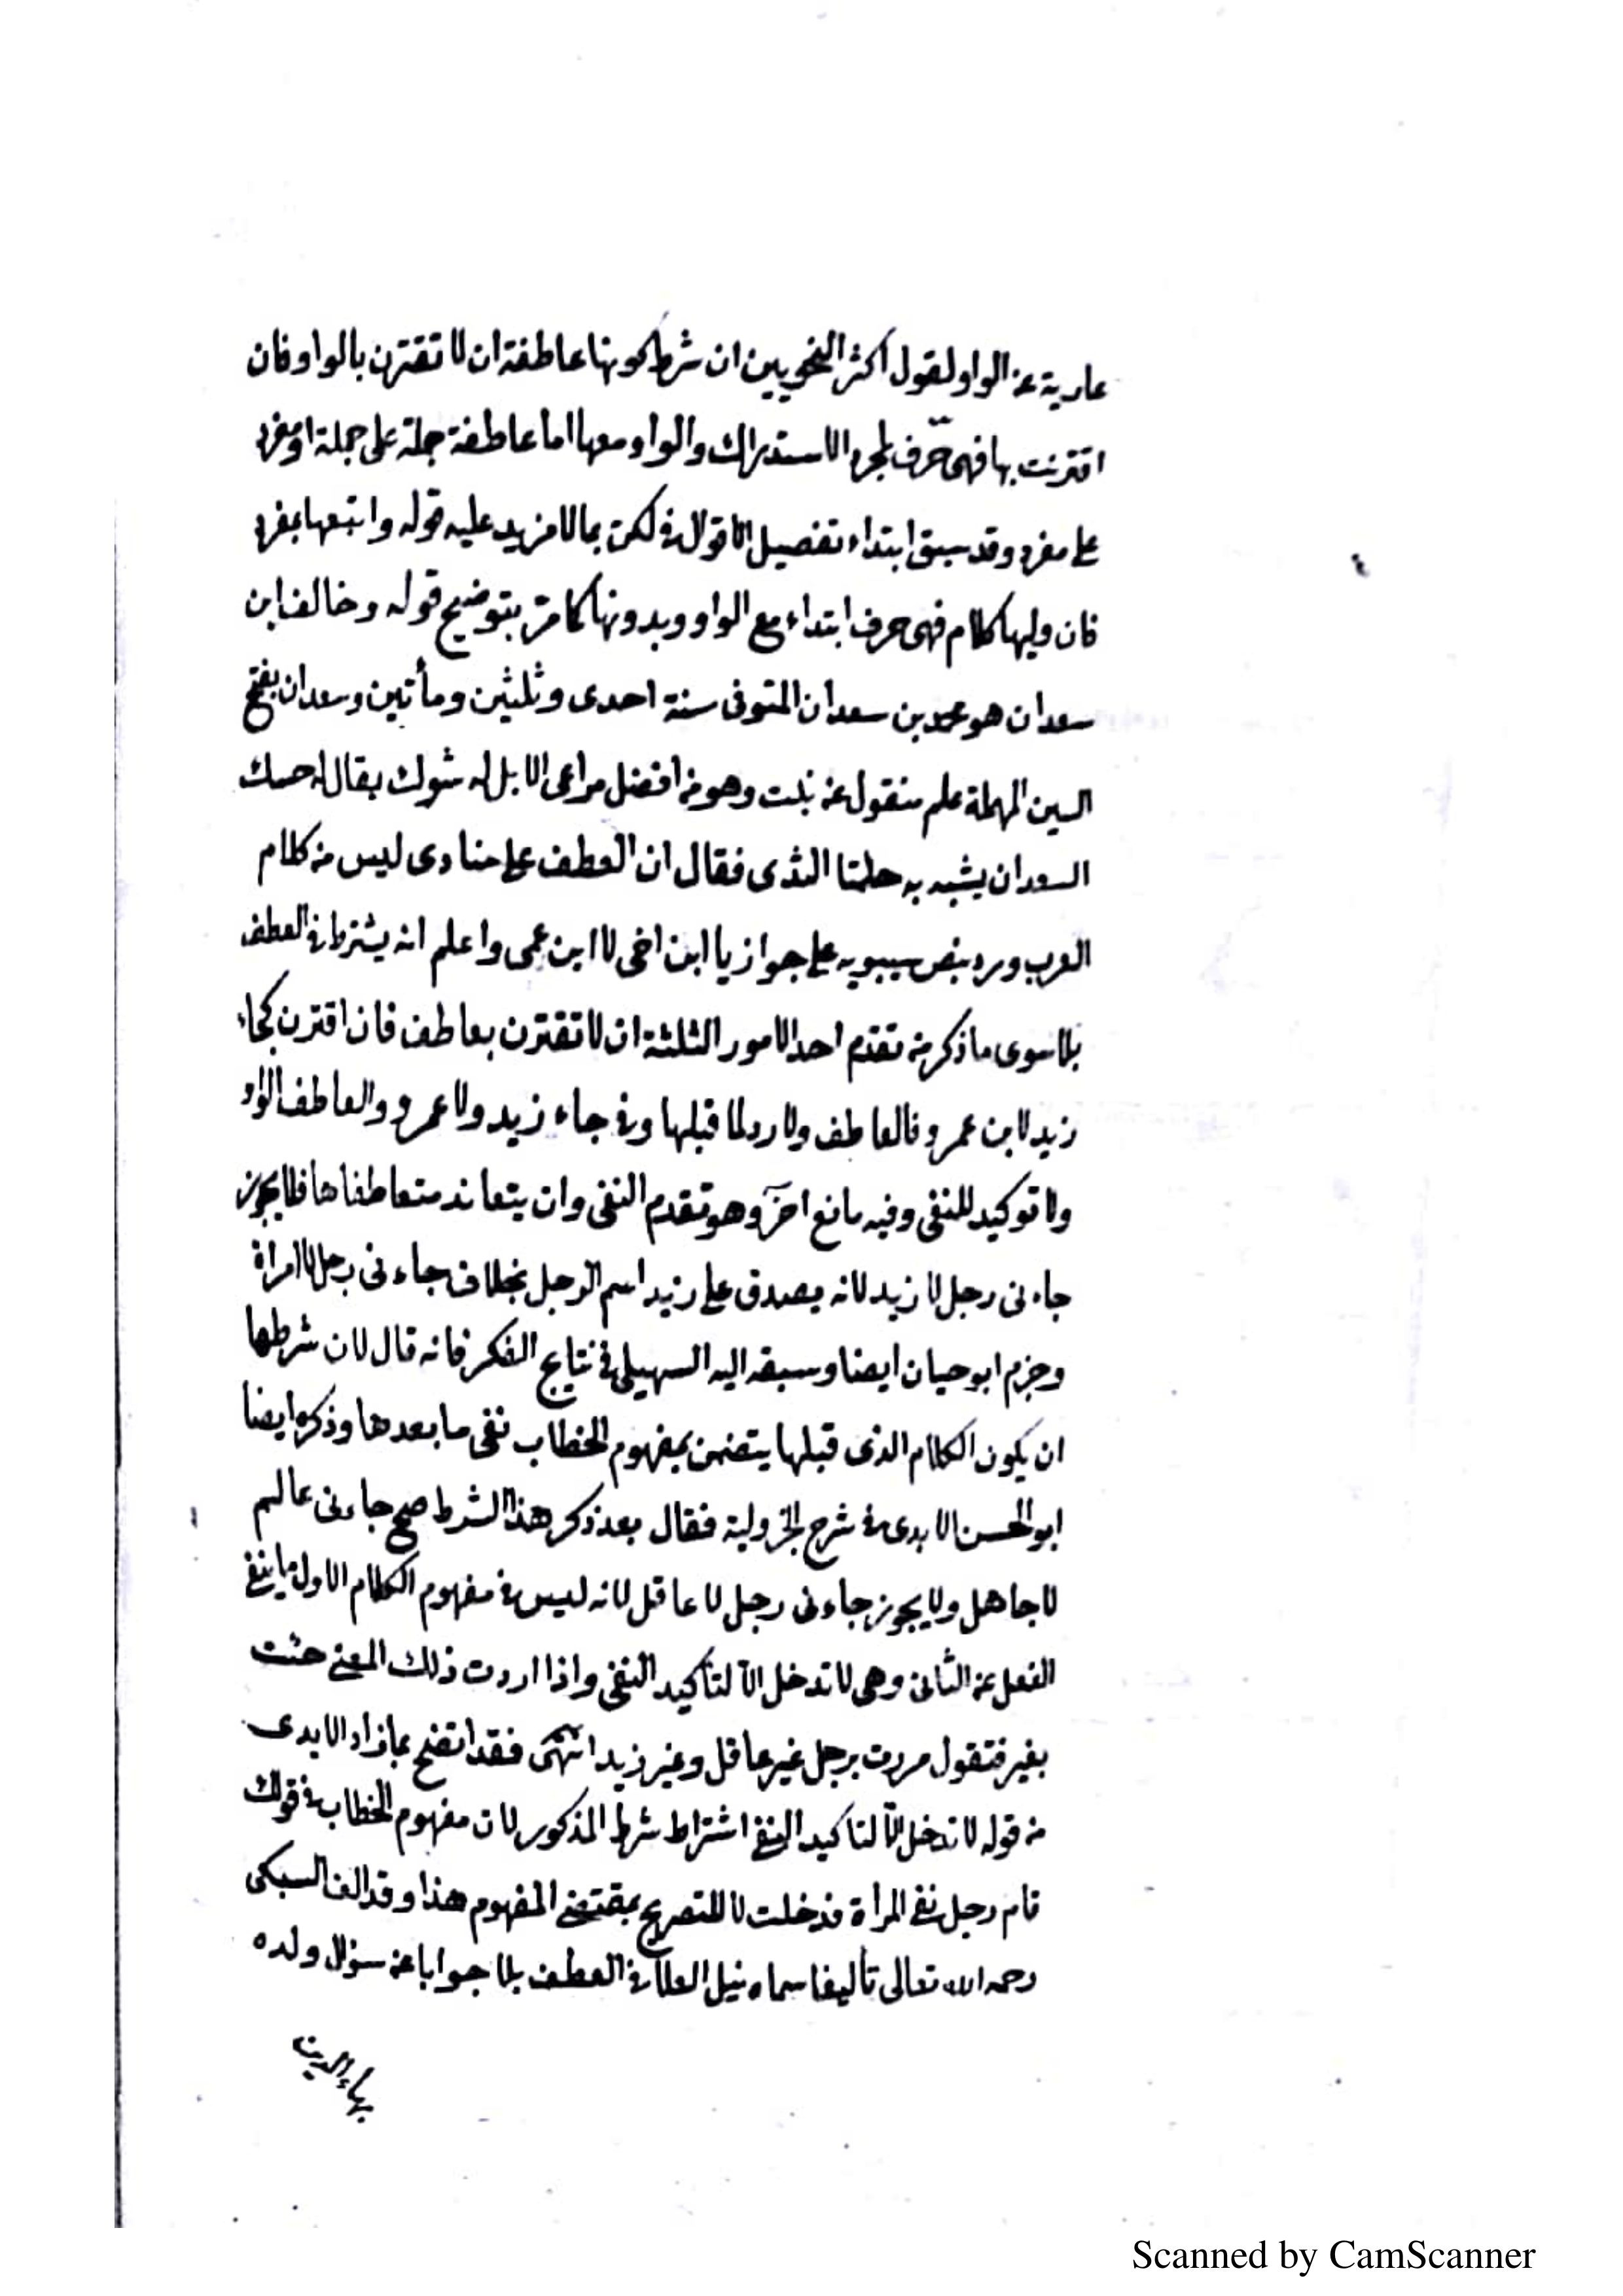 عارية عن الواو لقول اكثر النحويين ان شرط كونها عاطفة ان لا تقترن بالواو فان
اقترنت بها فهى حرف لمجرد الاستدراك والواو معها اما عاطفة جملة على جملة او مفرد
على مفرد وقد سبق ابتداء تفصيل الاقوال فى لكن بما لا مزيد عليه قوله واتبعها بمفرد
فان وليها كلام فهى حرف ابتداء مع الواو وبدونها كما مر بتوضيح قوله وخالف ابن
سعدان هو محمد بن سعدان المتوفى سنة احدى وثلثين ومأتين وسعدان بفتح
السين المهملة علم منقول عن نبت وهو من افضل مراعى الابل له شوك يقال له حسك
السعدان يشبه به حلمتا الثدى فقال ان العطف على منادى ليس من كلام
العرب ورد بنص سيبويه على جواز يا ابن اخى لا ابن عمى واعلم انه يشترط فى العطف
بلا سوى ما ذكر من تقدم احد الامور الثلثة ان لا تقترن بعاطف فان اقترن كجاء
زيد لا بن عمرو فالعاطف ولا رد لما قبلها وفى جاء زيد ولا عمرو والعاطف الواو
ولا توكيد للنفى وفيه مانع اخر وهو تقدم النفى وان يتعاند متعاطفاها فلا يجوز
جاءنى رجل لا زيد لانه يصدق على زيد اسم الرجل بخلاف جاءنى رجل لا امراة
وجزم ابو حيان ايضا وسبقه اليه السهيلى فى نتايج الفكر فانه قال لان شرطها
ان يكون الكلام الذى قبلها يتضمن بمفهوم الخطاب نفى ما بعدها وذكره ايضا
ابو الحسن الابدى فى شرح الجزولية فقال بعد ذكر هذا الشرط صح جاءنى عالم
لا جاهل ولا يجوز جاءنى رجل لا عاقل لانه ليس فى مفهوم الكلام الاول ما ينفى
الفعل عن الثانى وهى لا تدخل الا لتأكيد النفى واذا اردت ذلك المعنى جئت
بغير فتقول مررت برجل غير عاقل وغير زيد انتهى فقد اتضح بما زاد الابدى
من قوله لا تدخل الا لتاكيد النفى اشتراط شرط المذكور لان مفهوم الخطاب فى قولك
قام رجل نفى المرأة فدخلت لا للتصريح بمقتضى المفهوم هذا وقد الف السبكى
رحمه الله تعالى تأليفا سماه نيل العلا فى العطف بلا جوابا عن سؤال ولده
بهاء الدين
Scanned by CamScanner